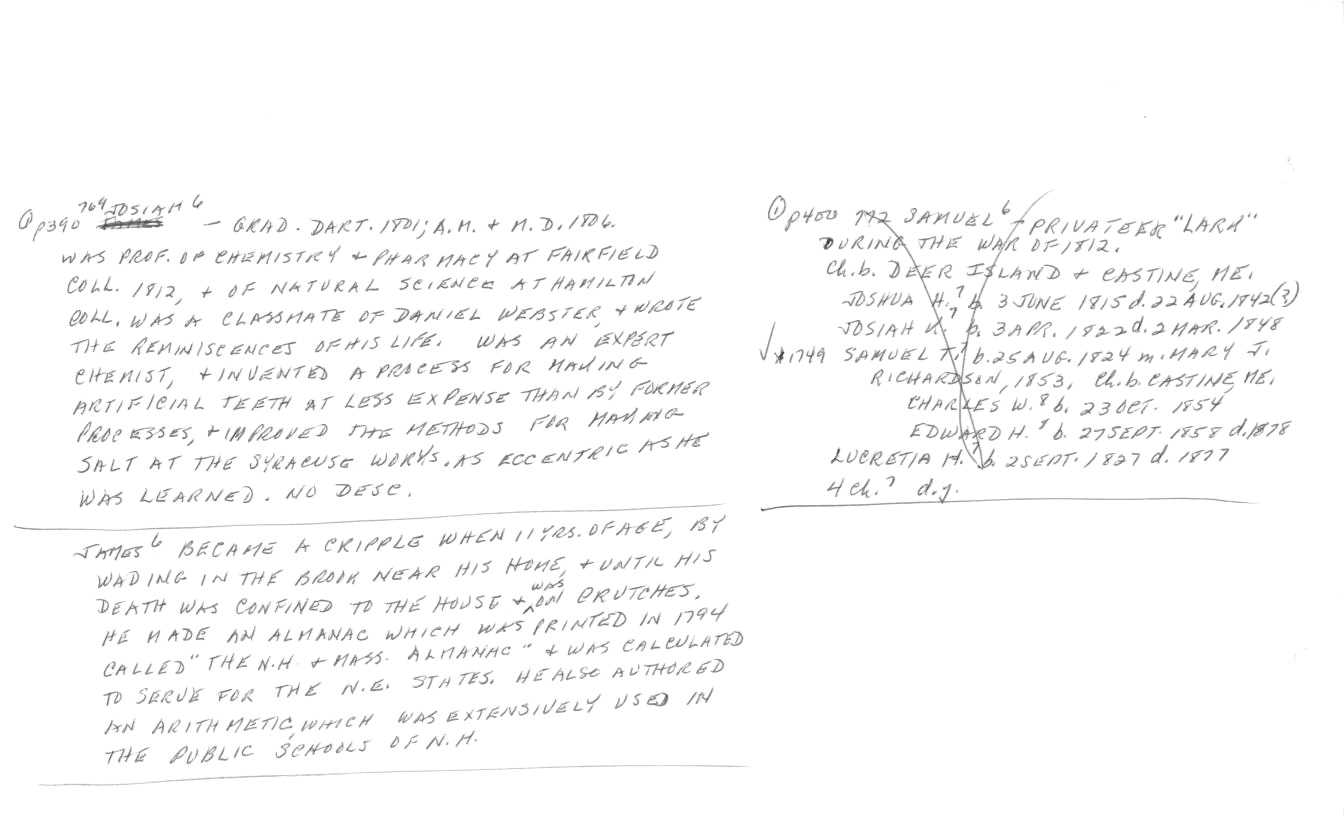 ① p390 764 JOSIAH⁶ – GRAD. DART. 1801; A.M. + M.D. 1806.
WAS PROF. OF CHEMISTRY + PHARMACY AT FAIRFIELD
COLL. 1812, + OF NATURAL SCIENCE AT HAMILTON
COLL. WAS A CLASSMATE OF DANIEL WEBSTER, + WROTE
THE REMINISCENCES OF HIS LIFE. WAS AN EXPERT
CHEMIST, + INVENTED A PROCESS FOR MAKING
ARTIFICIAL TEETH AT LESS EXPENSE THAN BY FORMER
PROCESSES, + IMPROVED THE METHODS FOR MAKING
SALT AT THE SYRACUSE WORKS. AS ECCENTRIC AS HE
WAS LEARNED. NO DESC.
JAMES⁶ BECAME A CRIPPLE WHEN 11 YRS. OF AGE, BY
WADING IN THE BROOK NEAR HIS HOME, + UNTIL HIS
DEATH WAS CONFINED TO THE HOUSE + WAS ON CRUTCHES.
HE MADE AN ALMANAC WHICH WAS PRINTED IN 1794
CALLED "THE N.H. + MASS. ALMANAC" + WAS CALCULATED
TO SERVE FOR THE N.E. STATES. HE ALSO AUTHORED
AN ARITHMETIC, WHICH WAS EXTENSIVELY USED IN
THE PUBLIC SCHOOLS OF N.H.
① p400 772 SAMUEL⁶ – PRIVATEER "LARK"
DURING THE WAR OF 1812.
Ch. b. DEER ISLAND + CASTINE, ME.
JOSHUA H.⁷ b. 3 JUNE 1815 d. 22 AUG. 1842(?)
JOSIAH K.⁷ b. 3 APR. 1822 d. 2 MAR. 1848
✓ * 1749 SAMUEL T.⁷ b. 25 AUG. 1824 m. MARY J.
RICHARDSON, 1853. Ch. b. CASTINE, ME.
CHARLES W.⁸ b. 23 OCT. 1854
EDWARD H.⁸ b. 27 SEPT. 1858 d. 1878
LUCRETIA H.⁷ b. 2 SEPT. 1827 d. 1877
4 Ch.⁷ d.y.